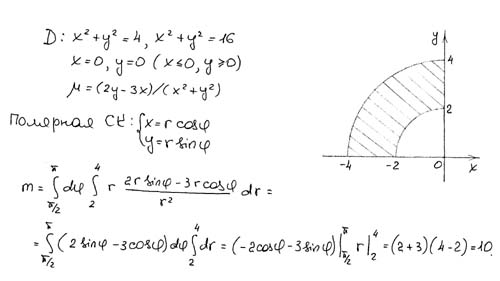 D: x² + y² = 4, x² + y² = 16
x = 0, y = 0 (x ≤ 0, y ≥ 0)
μ = (2y - 3x)/(x² + y²)
Полярная СК: {x = r cosφ
y = r sinφ
m = ∫_{π/2}^{π} dφ ∫_{2}^{4} r (2r sinφ - 3r cosφ)/r² dr =
= ∫_{π/2}^{π} (2 sinφ - 3 cosφ) dφ ∫_{2}^{4} dr = (-2cosφ - 3 sinφ)|_{π/2}^{π} r|_{2}^{4} = (2+3)(4-2) = 10.
y
4
2
-4 -2 0 x